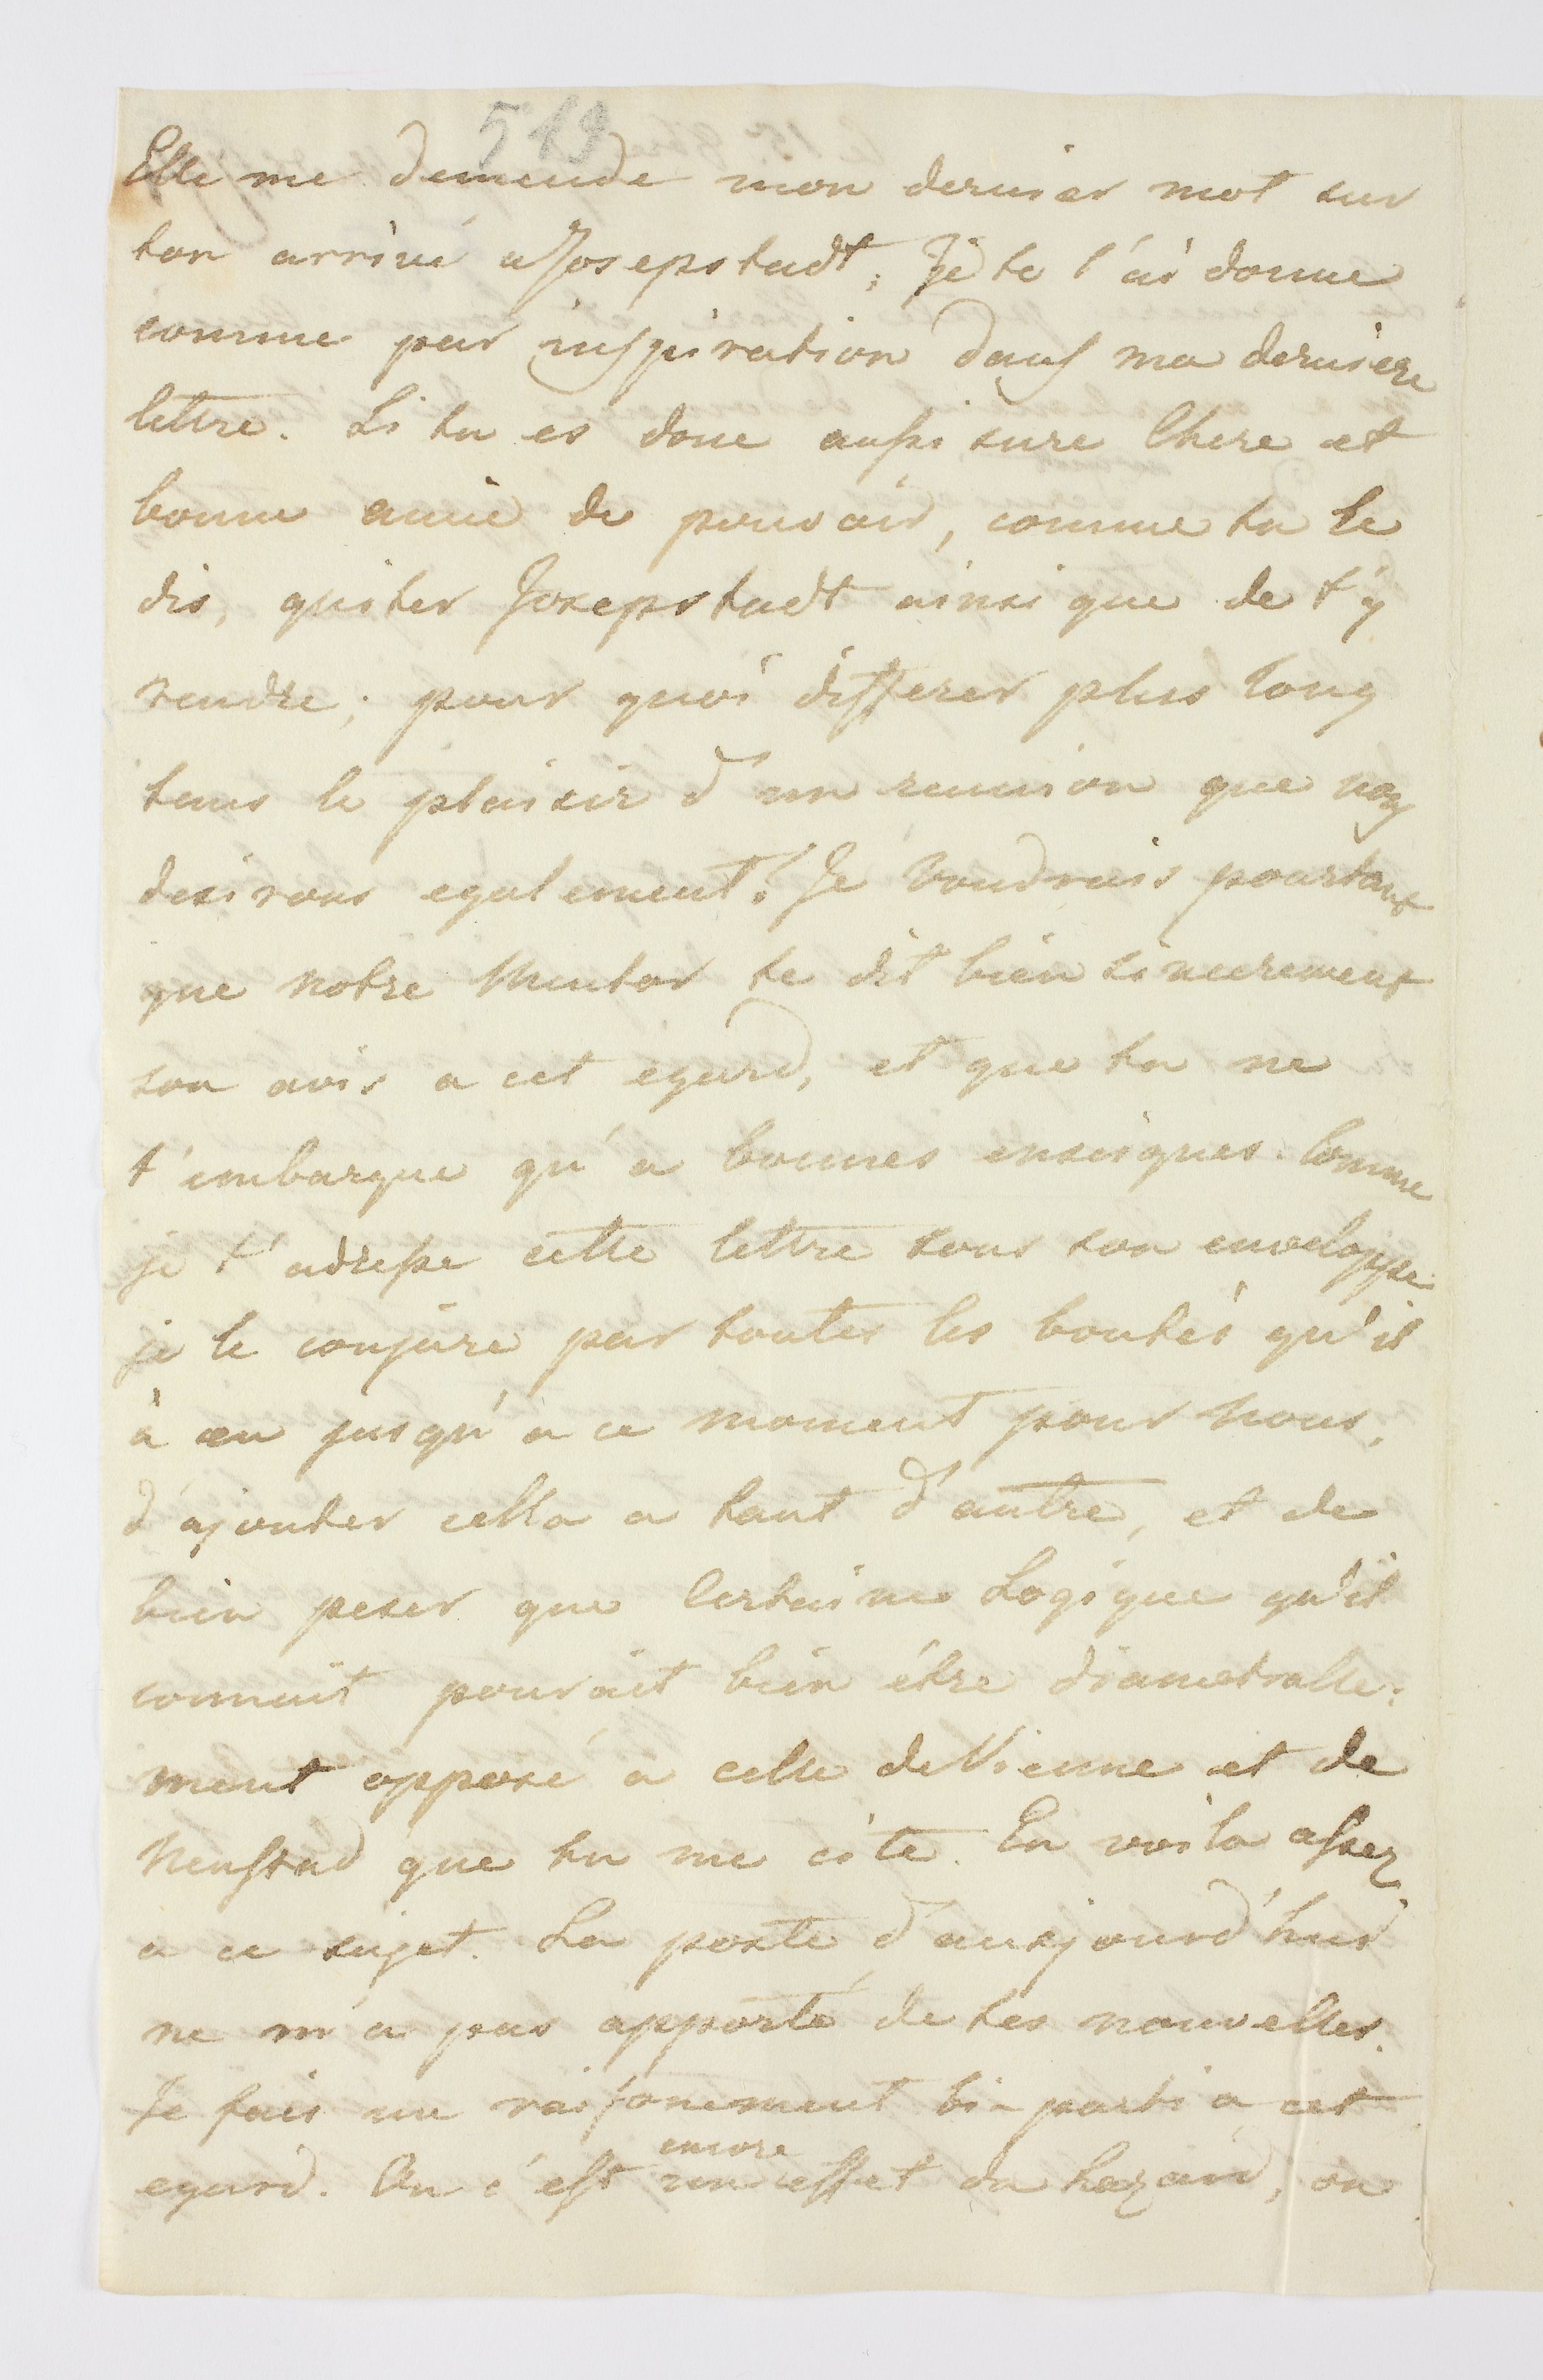 513
Elle me demende mon dernier mot sur
ton arrivé a Josepstadt; Je te l'ai donne
comme par inspiration dans ma derniere
lettre. Si tu es donc aussi sure Chere et
bonne amie de pouvoir, comme tu le
dis, quiter Josepstadt ainsi que de t'y
rendre; pour quoi differer plus long
tems le plaisir d'un reunion que nous
desirons egalement? Je voudrais pourtant
que notre Mentor te dit bien sinceerement
son avis a cet egard, et que tu ne
t'embarque qu'a bonnes enseignes. Comme
je t'adresse cette lettre sous son enveloppe
je le conjure par toutes les bontés qu'il
à eu jusqu'a ce moment pour nous,
d'ajouter cella a tant d'autre, et de
bien peser que Certaine Logique qu'il
connait pourait bien être diametralle:
ment opposé a celle de Vienne et de
Neustad que tu me cite. En voila assez
a ce sujet. La poste d'aujourd'hui
ne m'a pas apporté de tes nouvelles.
Je fais un raisonement bi-parti a cet
egard. Ou c'est encore un effet du hazard, ou